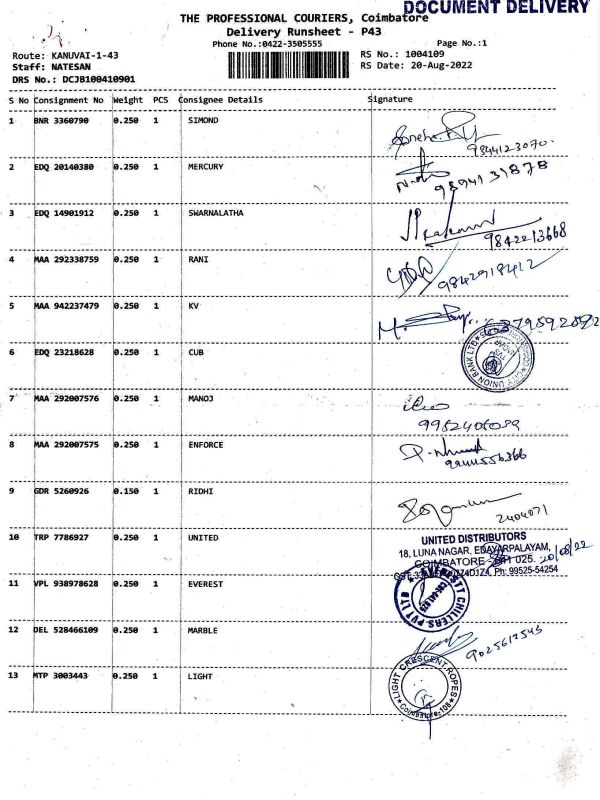 DOCUMENT DELIVERY
THE PROFESSIONAL COURIERS, Coimbatore
Delivery Runsheet - P43
Phone No.:0422-3505555
Page No.:1
Route: KANUVAI-1-43
RS No.: 1004109
Staff: NATESAN
RS Date: 20-Aug-2022
DRS No.: DCJB100410901
S No Consignment No Weight PCS Consignee Details Signature
1 BNR 3360790 0.250 1 SIMOND
9844123070.
2 EDQ 20140380 0.250 1 MERCURY
9894131878
3 EDQ 14901912 0.250 1 SWARNALATHA
9842213668
4 MAA 292338759 0.250 1 RANI
9842918412
5 MAA 942237479 0.250 1 KV
6 EDQ 23218628 0.250 1 CUB
CITY UNION BANK LTD
7 MAA 292007576 0.250 1 MANOJ
8 MAA 292007575 0.250 1 ENFORCE
9 GDR 5260926 0.150 1 RIDHI
2404071
10 TRP 7786927 0.250 1 UNITED
UNITED DISTRIBUTORS
18, LUNA NAGAR, EDAYARPALAYAM,
COIMBATORE - 641 025. 20/08/22
Ph: 99525-54254
11 VPL 938978628 0.250 1 EVEREST
CHILLERS PVT LTD
12 DEL 528466109 0.250 1 MARBLE
9025612543
13 MTP 3003443 0.250 1 LIGHT
LIGHT CRESCENT ROPES
Coimbatore-108